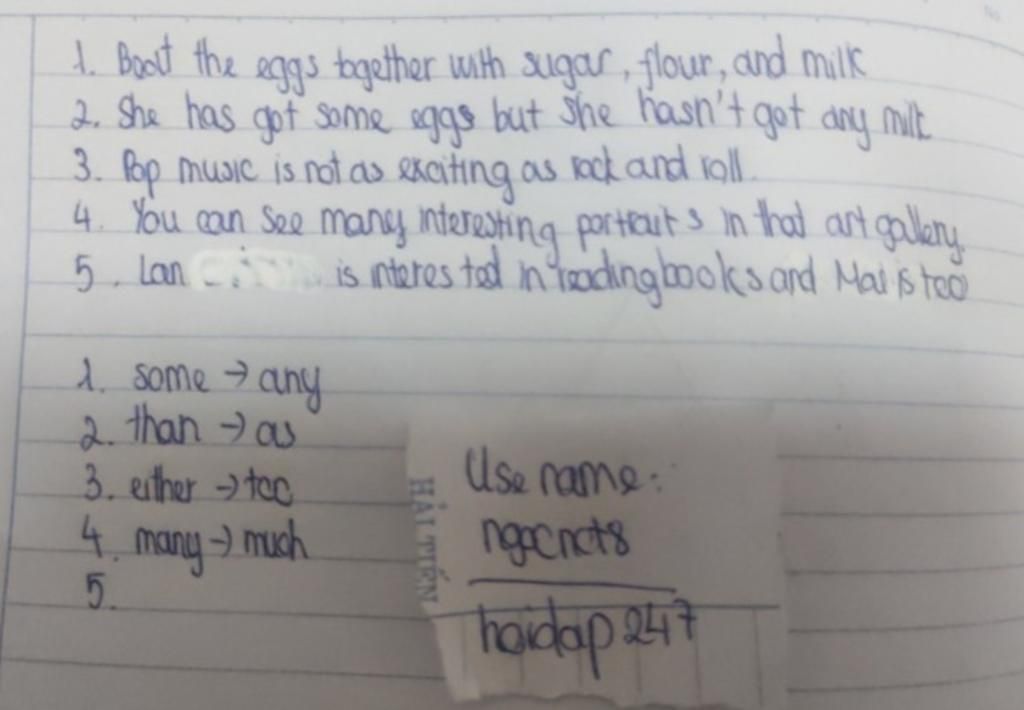 1. Beat the eggs together with sugar, flour, and milk
2. She has got some eggs but she hasn't got any milk
3. Pop music is not as exciting as rock and roll.
4. You can see many interesting portraits in that art gallery.
5. Lan is interested in reading books and Mai is too
1. some → any
2. than → as
3. either → too
4. many → much
5.
HẢI TIẾN
Use name:
ngocnct8
hoidap247